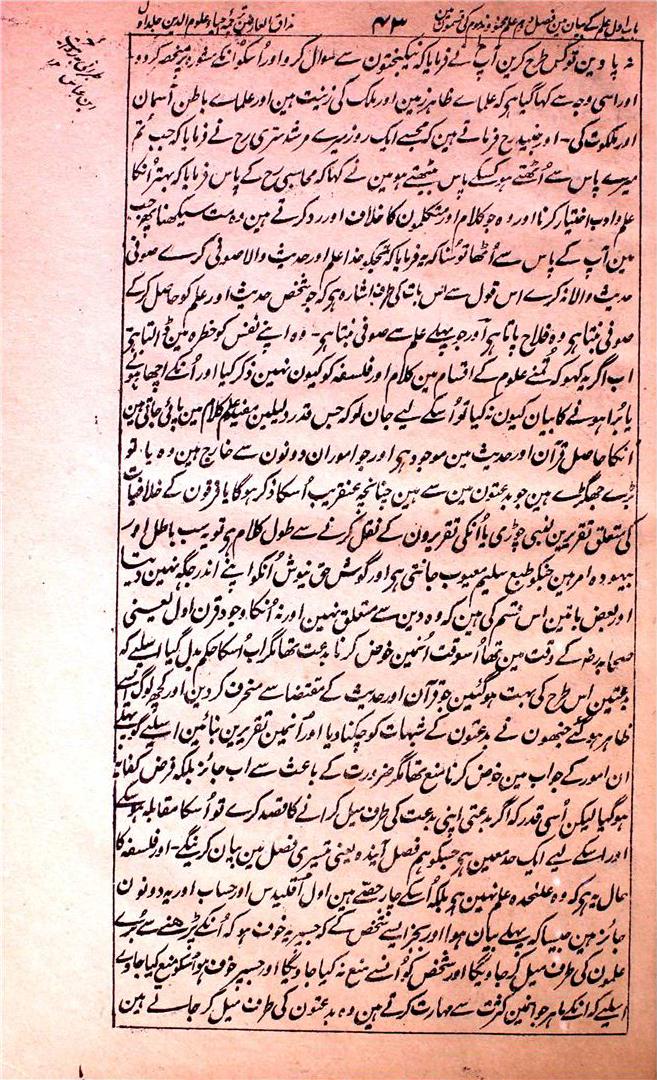 باب اول علم کے بیان مین فصل دوم علم محمود و مذموم کی قسمون مین
۴۳
مذاق العارفین ترجمہ احیاء علوم الدین جلد اول
نہ پاوین تو کس طرح کرین آپ نے فرمایا کہ نیکبختون سے سوال کرو اور اُسکو اُنکے مشورہ پر منحصر کر دو
اور اسی وجہ سے کہا گیا ہی کہ علماے ظاہر زمین اور ملک کی زینت ہین اور علماے باطن آسمان
اور ملکوت کی۔ اور جنید رح فرماتے ہین کہ مجھسے ایک روز میرے مرشد سری رح نے فرمایا کہ جب تم
میرے پاس سے اُٹھتے ہو کسکے پاس بیٹھتے ہو مین نے کہا کہ محاسبی رح کے پاس فرمایا کہ بہتر اُنکا
علم و ادب اختیار کرنا اور وہ جو کلام اور متکلمون کا خلاف اور رد کرتے ہین وہ مت سیکھنا پھر جب
مین آپ کے پاس سے اُٹھا تو سُنا کہ یہ فرمایا کہ تجھکو خدا علم اور حدیث والا صوفی کرے صوفی
حدیث والا نہ کرے اس قول سے اس بات کی طرف اشارہ ہی کہ جو شخص حدیث اور علم کو حاصل کر کے
صوفی بنتا ہی وہ فلاح پاتا ہی اور جو پہلے علم سے صوفی بنتا ہی۔ وہ اپنے نفس کو خطرہ مین ڈالتا ہی
اب اگر یہ کہو کہ تمنے علوم کے اقسام مین کلام اور فلسفہ کو کیون نہین ذکر کیا اور اُنکے اچھا ہونے
یا بُرا ہونے کا بیان کیون نہ کیا تو اُسکے لیے جان لو کہ جس قدر دلیلین مفید علم کلام مین پائی جاتی ہین
اُنکا حاصل قرآن اور حدیث مین موجود ہی اور جو امور ان دونون سے خارج ہین وہ یا تو
بُرے جھگڑے ہین جو بدعتون مین سے ہین چنانچہ عنقریب اُسکا ذکر ہوگا یا فرقون کے خلافیات
کی متعلق تقریرین لنبی چوڑی یا اُنکی تقریرون کے نقل کرنے سے طول کلام ہی تو یہ سب باطل اور
بیہودہ امر ہین جنکو طبع سلیم معیوب جانتی ہی اور گوش حق نیوش اُنکو اپنے اندر جگہ نہین دیتا
اور بعض باتین اس قسم کی ہین کہ وہ دین سے متعلق نہین اور نہ اُنکا وجود قرن اول یعنی
صحابہ رضہ کے وقت مین تھا اُسوقت اُنمین خوض کرنا بدعت تھا مگر اب اُسکا حکم بدل گیا اسلیے کہ
بدعتین اس طرح کی بہت ہوگئین جو قرآن اور حدیث کے مقتضا سے منحرف کر دین اور کچھ لوگ ایسے
ظاہر ہوگئے جنھون نے بدعتون کے شبہات کو چمکا دیا اور اُنمین تقریرین بنائین اسلیے گو پہلے
ان امور کے جواب مین خوض کرنا منع تھا مگر ضرورت کے باعث سے اب جائز بلکہ فرض کفایہ
ہوگیا لیکن اُسی قدر کہ اگر بدعتی اپنی بدعت کی طرف میل کرانے کا قصد کرے تو اُسکا مقابلہ ہو سکے
اور اسکے لیے ایک حد معین ہی جسکو ہم فصل آیندہ یعنی تیسری فصل مین بیان کرینگے۔ اور فلسفہ کا
حال یہ ہی کہ وہ علٰحدہ علم نہین ہی بلکہ اُسکے چار حصے ہین اول اُقلیدس اور حساب اور یہ دونون
جائز ہین جیسا کہ پہلے بیان ہوا اور بجز ایسے شخص کے کہ جسپر یہ خوف ہو کہ اُنکے پڑھنے سے بُرے
علمون کی طرف میل کر جاویگا اور شخص کو اُنسے منع نہ کیا جاویگا اور جسپر خوف ہو اُسکو منع کیا جاوے
اسلیے کہ اُنکے ماہر جو اُنمین کثرت سے مہارت کرتے ہین وہ بدعتون کی طرف میل کر جاتے ہین
طبرانی بروایت
ابن عباس ۱۲